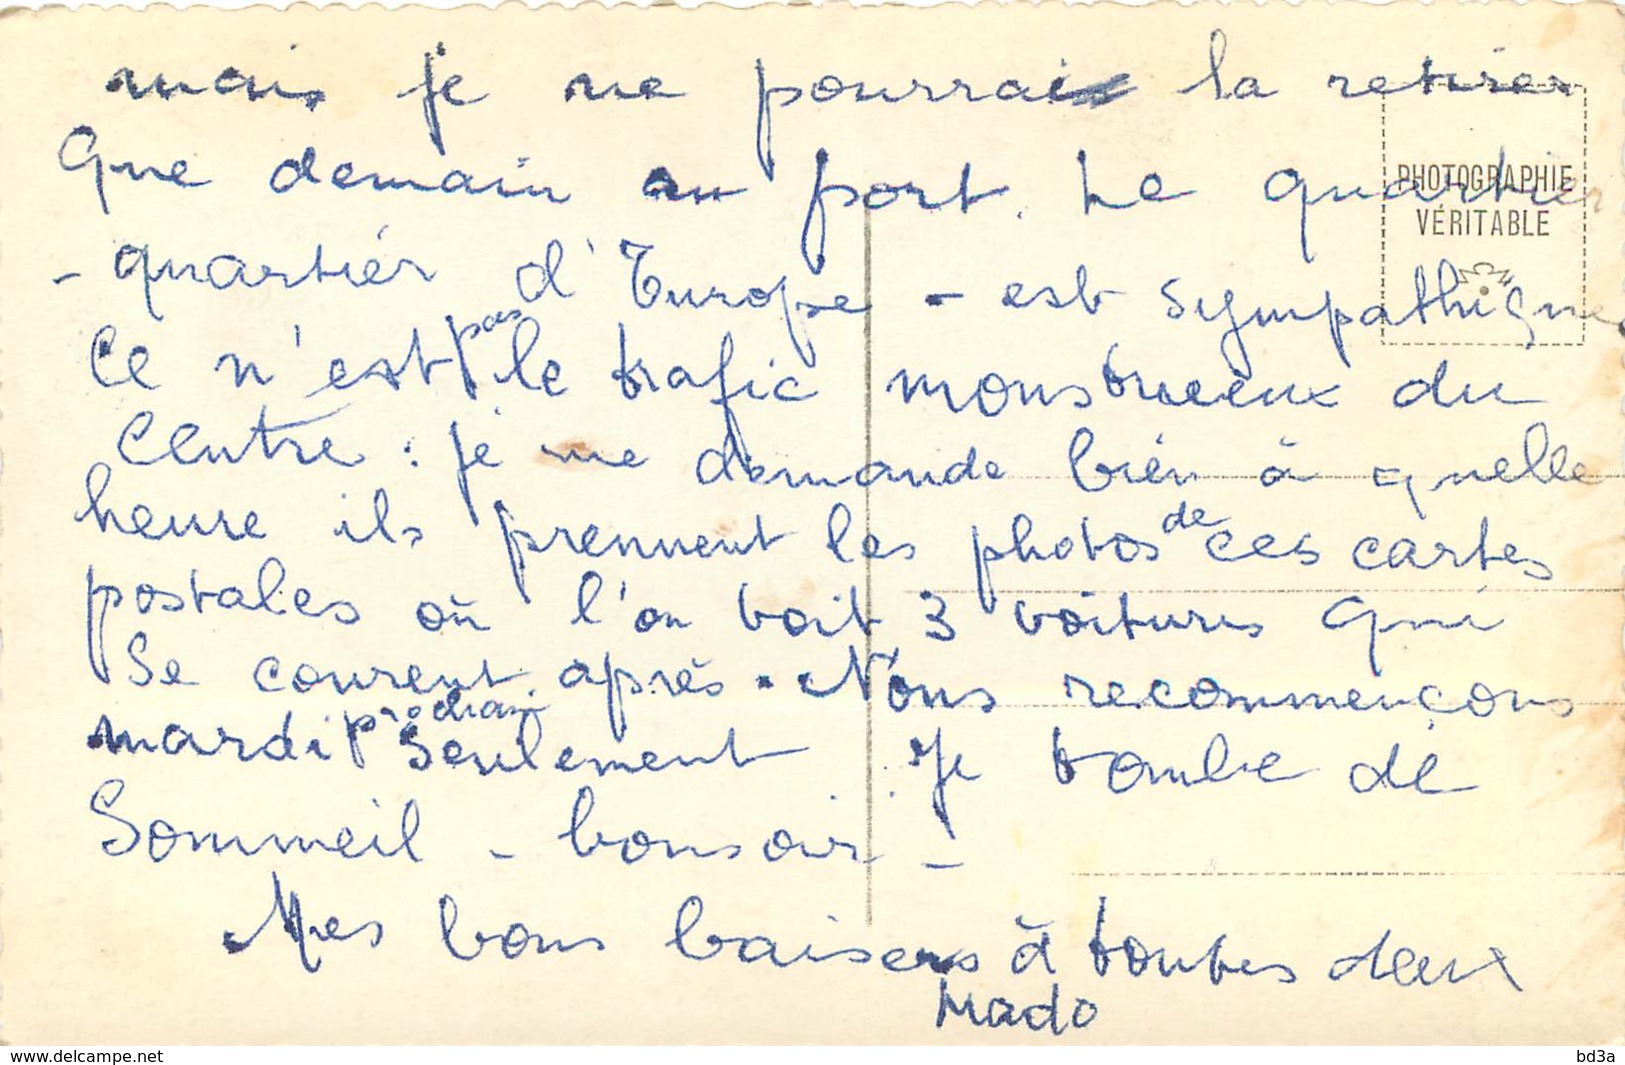 mais je ne pourrai la retirer
Que demain au port. Le quartier
- quartier d'Europe - est sympathique
Ce n'est pas le trafic monstrueux du
Centre : je me demande bien à quelle
heure ils prennent les photos de ces cartes
postales où l'on voit 3 voitures qui
se courent après. Nous recommençons
mardi prochain seulement. Je tombe de
Sommeil - bonsoir -
Mes bons baisers à toutes deux
Mado
PHOTOGRAPHIE
VÉRITABLE
www.delcampe.net
bd3a